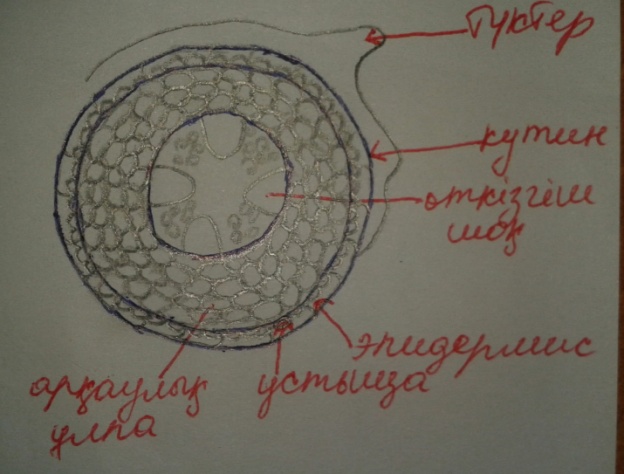 түктер
кутин
өткізгіш
шоқ
эпидермис
устьица
арқаулық
ұлпа